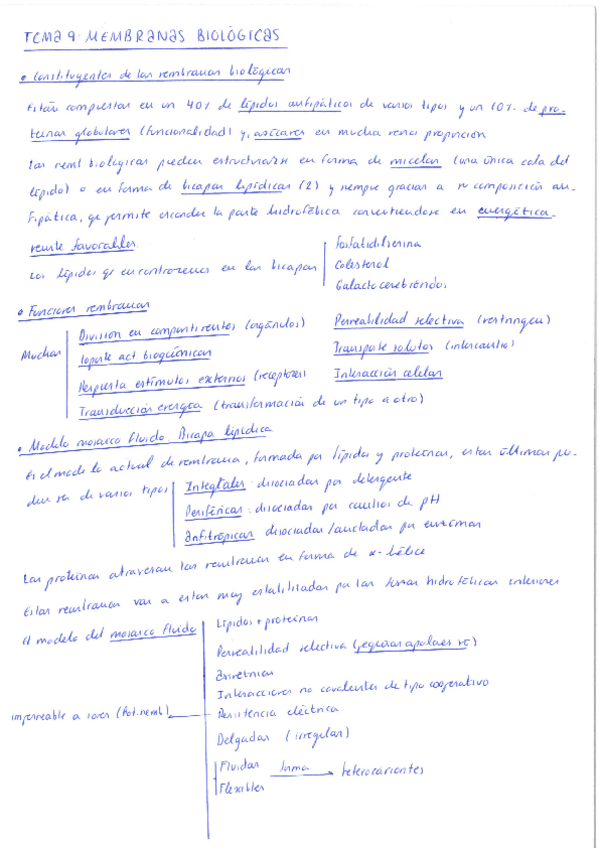 TEMA 9: MEMBRANAS BIOLÓGICAS
• Constituyentes de las membranas biológicas
Están compuestas en un 40% de lípidos anfipáticos de varios tipos y un 60% de pro-
teínas globulares (funcionalidad) y, azúcares en mucha menos proporción
Las memb biologicas pueden estructurarse en forma de micelas (una única cola del
lípido) o en forma de bicapas lipídicas (2) y siempre gracias a su composición an-
fipática, q permite esconder la parte hidrofóbica convirtiendose en energética-
mente favorables
Los lípidos q encontraremos en las bicapas
Fosfatidilserina
Colesterol
Galactocerebrósidos
• Funciones membranas
Muchas
División en compartimentos (orgánulos)
Soporte act bioquímicas
Respuesta estímulos externos (receptores)
Transducción energía (transformación de un tipo a otro)
Permeabilidad selectiva (restringen)
Transporte solutos (intercambio)
Interacción celular
• Modelo mosaico fluido. Bicapa lipídica
Es el modelo actual de membrana, formada por lípidos y proteínas, estas últimas pu-
den ser de varios tipos
Integrales: disociadas por detergente
Periféricas: disociadas por cambios de pH
Anfitrópicas disociadas/ancladas por enzimas
Las proteínas atraviesan las membranas en forma de α-hélice
Estas membranas van a estar muy estabilizadas por las fuerzas hidrofóbicas interiores
El modelo del mosaico fluido
Lípidos + proteínas
Permeabilidad selectiva (pequeñas apolares sí)
Asimétricas
Interacciones no covalentes de tipo cooperativo
impermeable a iones (Pot. memb)
Resistencia eléctrica
Delgadas (irregular)
Fluidas
Flexibles
forma
heterocariontes